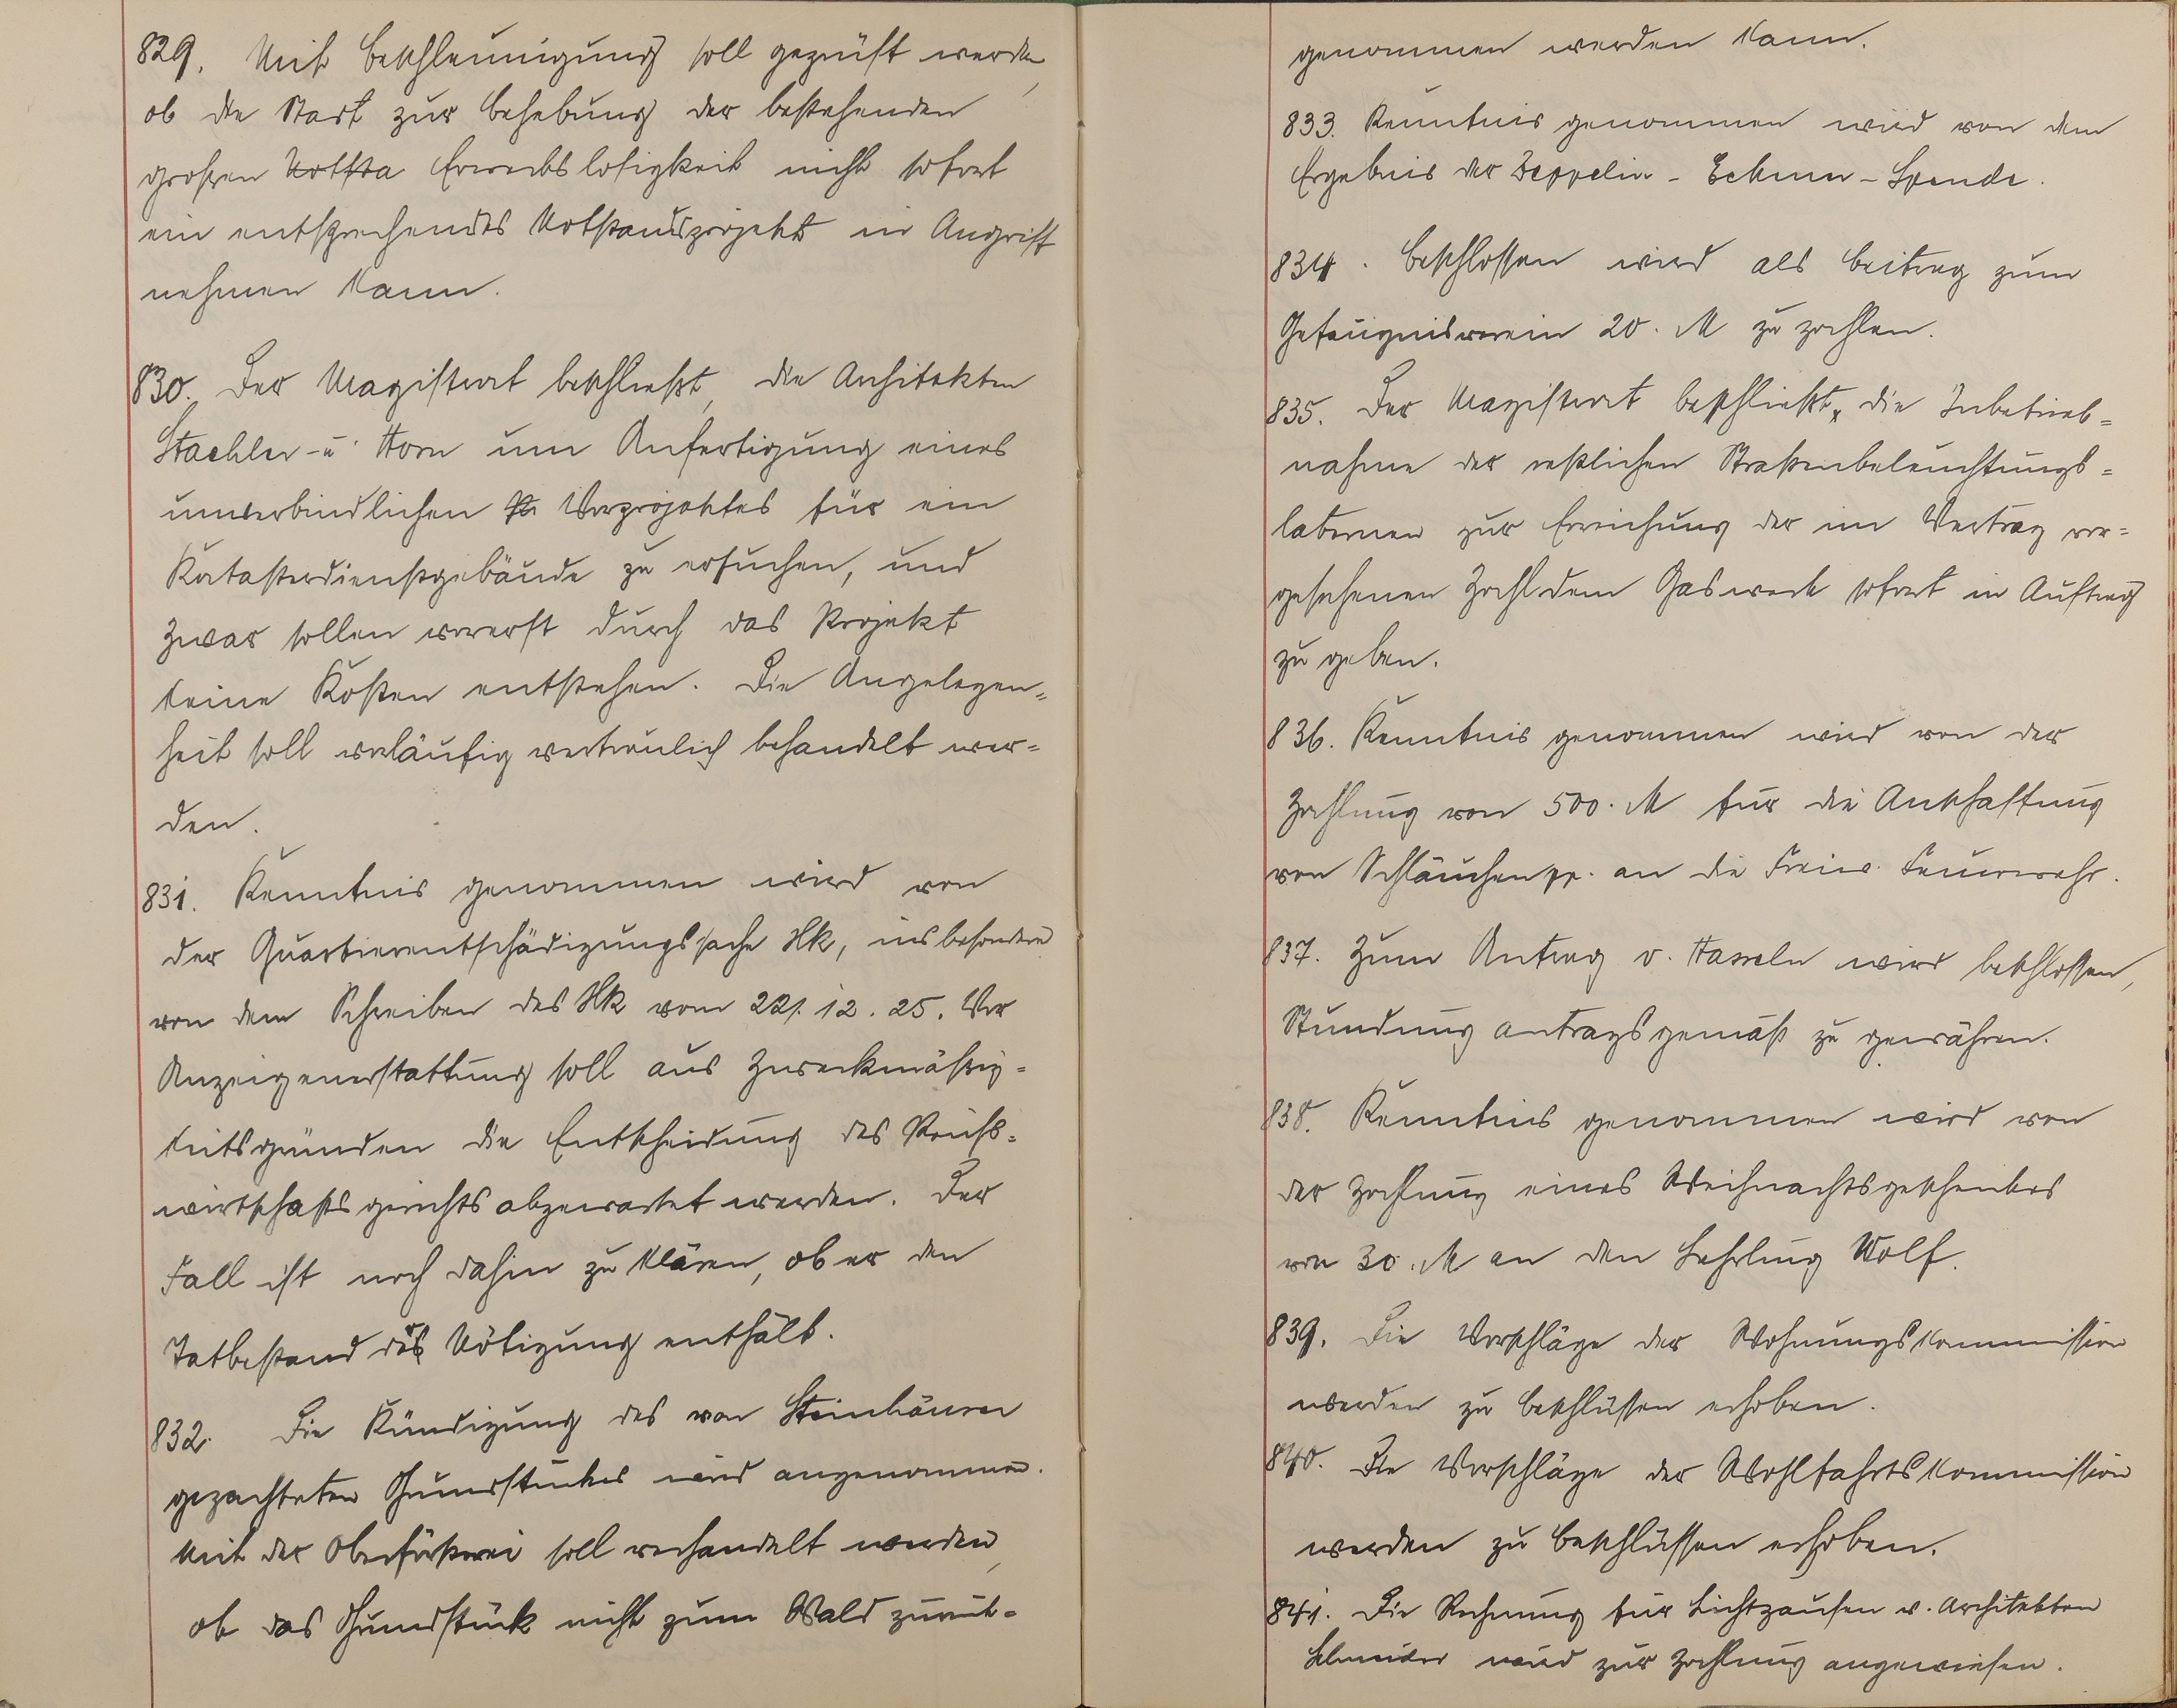 829. Mit Beschleunigung soll geprüft werden,
ob die Stadt zur Behebung der bestehenden
großen Notsta Erwerbslosigkeit nicht sofort
ein entsprechendes Notstandsprojekt in Angriff
nehmen kann.
830. Der Magistrat beschließt, die Architekten
Staehler u. Horn um Anfertigung eines
unverbindlichen Vorprojektes für ein
Katasterdienstgebäude zu ersuchen, und
zwar sollen vorerst durch das Projekt
keine Kosten entstehen. Die Angelegen=
heit soll vorläufig vertraulich behandelt wer=
den.
831. Kenntnis genommen wird von
der Quartierentschädigungssache Hk, insbesondere
von dem Schreiben des Hk vom 22. 12. 25. Vor
Anzeigenerstattung soll aus Zweckmäßig=
keitsgründen die Entscheidung des Reichs=
wirtschaftsgerichts abgewartet werden. Der
Fall ist noch dahin zu klären, ob er den
Tatbestand der Nötigung enthält.
832. Die Kündigung des von Steinhäuser
gepachteten Grundstückes wird angenommen.
Mit der Oberförsterei soll verhandelt werden,
ob das Grundstück nicht zum Wald zurück=
genommen werden kann.
833. Kenntnis genommen wird von dem
Ergebnis der Zeppelin-Eckener-Spende.
834. Beschlossen wird als Beitrag zum
Gefängnisverein 20. M zu zahlen.
835. Der Magistrat beschließt, die Inbetrieb=
nahme der restlichen Straßenbeleuchtungs=
laternen zur Erreichung der im Vertrag vor=
gesehenen Zahl dem Gaswerk sofort in Auftrag
zu geben.
836. Kenntnis genommen wird von der
Zahlung von 500. M für die Anschaffung
von Schläuchen pp. an die Freiw. Feuerwehr.
837. Zum Antrag v. Hasseln wird beschlossen,
Stundung antragsgemäß zu gewähren.
838. Kenntnis genommen wird von
der Zahlung eines Weihnachtsgeschenkes
von 30. M an den Lehrling Wolf.
839. Die Vorschläge der Wohnungskommission
werden zu Beschlüssen erhoben.
840. Die Vorschläge der Wohlfahrtskommission
werden zu Beschlüssen erhoben.
841. Die Rechnung für Lichtpausen v. Architekten
wird zur Zahlung angewiesen.